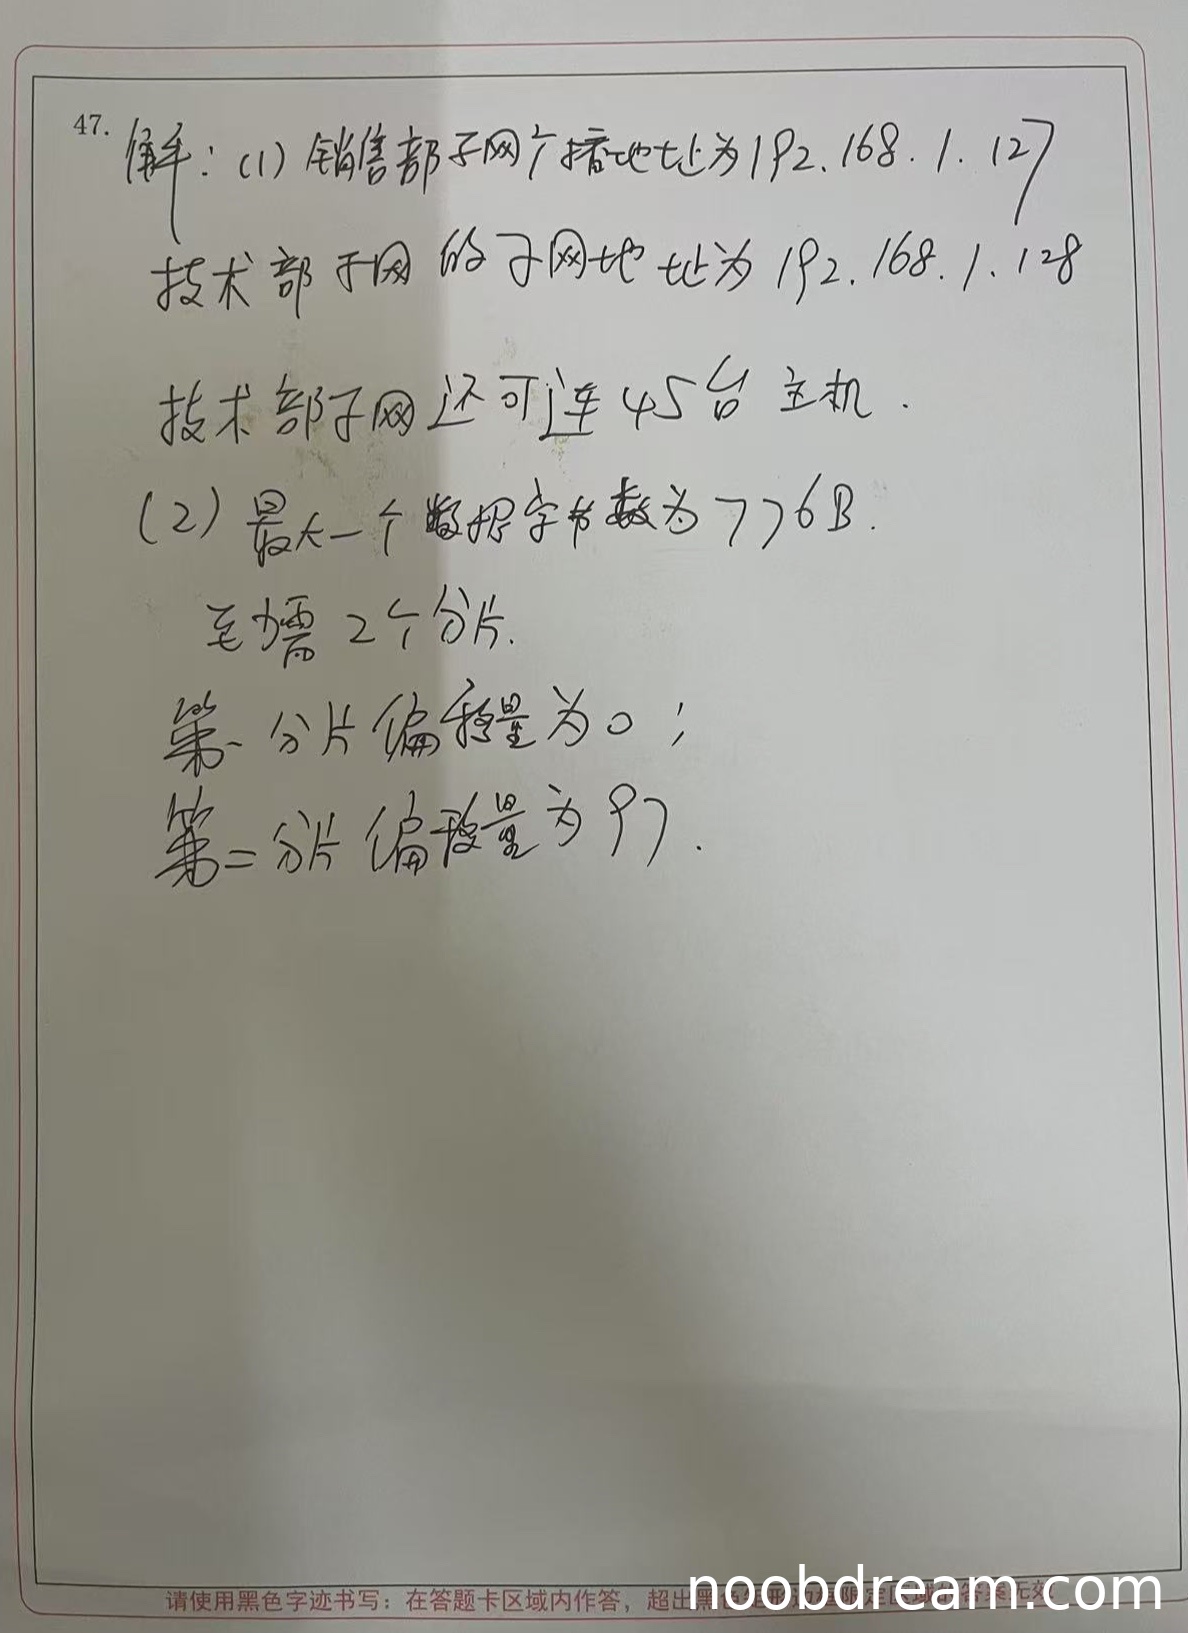 47. 解：(1) 销售部子网广播地址为192.168.1.127
技术部子网的子网地址为192.168.1.128
技术部子网还可连45台主机.
(2) 最大一个数据字节数为776B.
至少需2个分片.
第一分片偏移量为0；
第二分片偏移量为97.
请使用黑色字迹书写：在答题卡区域内作答，超出黑色
noobdream.com